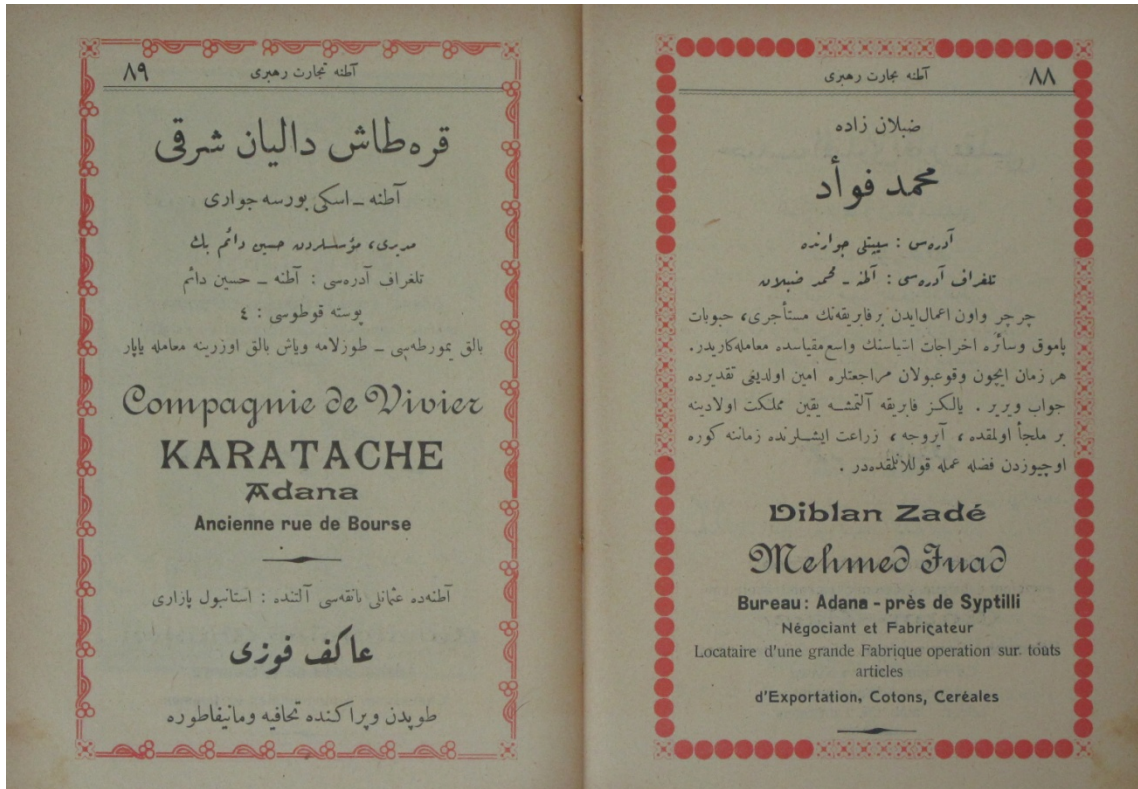 ٨٨
آطنه تجارت رهبری
ضبلان زاده
محمد فوأد
آدره‌س : سپتلی جوارنده
تلغراف آدره‌سی : آطنه ـ محمد ضبلان
چرچر واون اعمال‌ایدن برفابریقه‌نك مستأجری، حبوبات
پاموق وسائره اخراجات اشیاسنك واسع‌مقیاسده معامله‌كاریدر.
هر زمان ایچون وقوعبولان مراجعتلره امین اولدیغی تقدیرده
جواب ویریر . یالكز فابریقه آلتمشه یقین مملكت اولادینه
بر ملجأ اولمقده ، آیروجه ، زراعت ایشلرنده زماننه كوره
اوچیوزدن فضله عمله قوللانلمقده‌در .
Diblan Zadé
Mehmed Fuad
Bureau : Adana - près de Syptilli
Négociant et Fabricateur
Locataire d'une grande Fabrique operation sur touts
articles
d'Exportation, Cotons, Ceréales
٨٩
آطنه تجارت رهبری
قره‌طاش دالیان شرقی
آطنه ـ اسكی بورسه جواری
مدیری، مؤسسلردن حسین دائم بك
تلغراف آدره‌سی : آطنه ـ حسین دائم
پوسته قوطوسی : ٤
بالق یمورطه‌سی ـ طوزلامه ویاش بالق اوزرینه معامله یاپار
Compagnie de Vivier
KARATACHE
Adana
Ancienne rue de Bourse
آطنه‌ده عثمانلی بانقه‌سی آلتنده : استانبول پازاری
عاكف فوزی
طوپدن وپراكنده تحافیه ومانیفاطوره